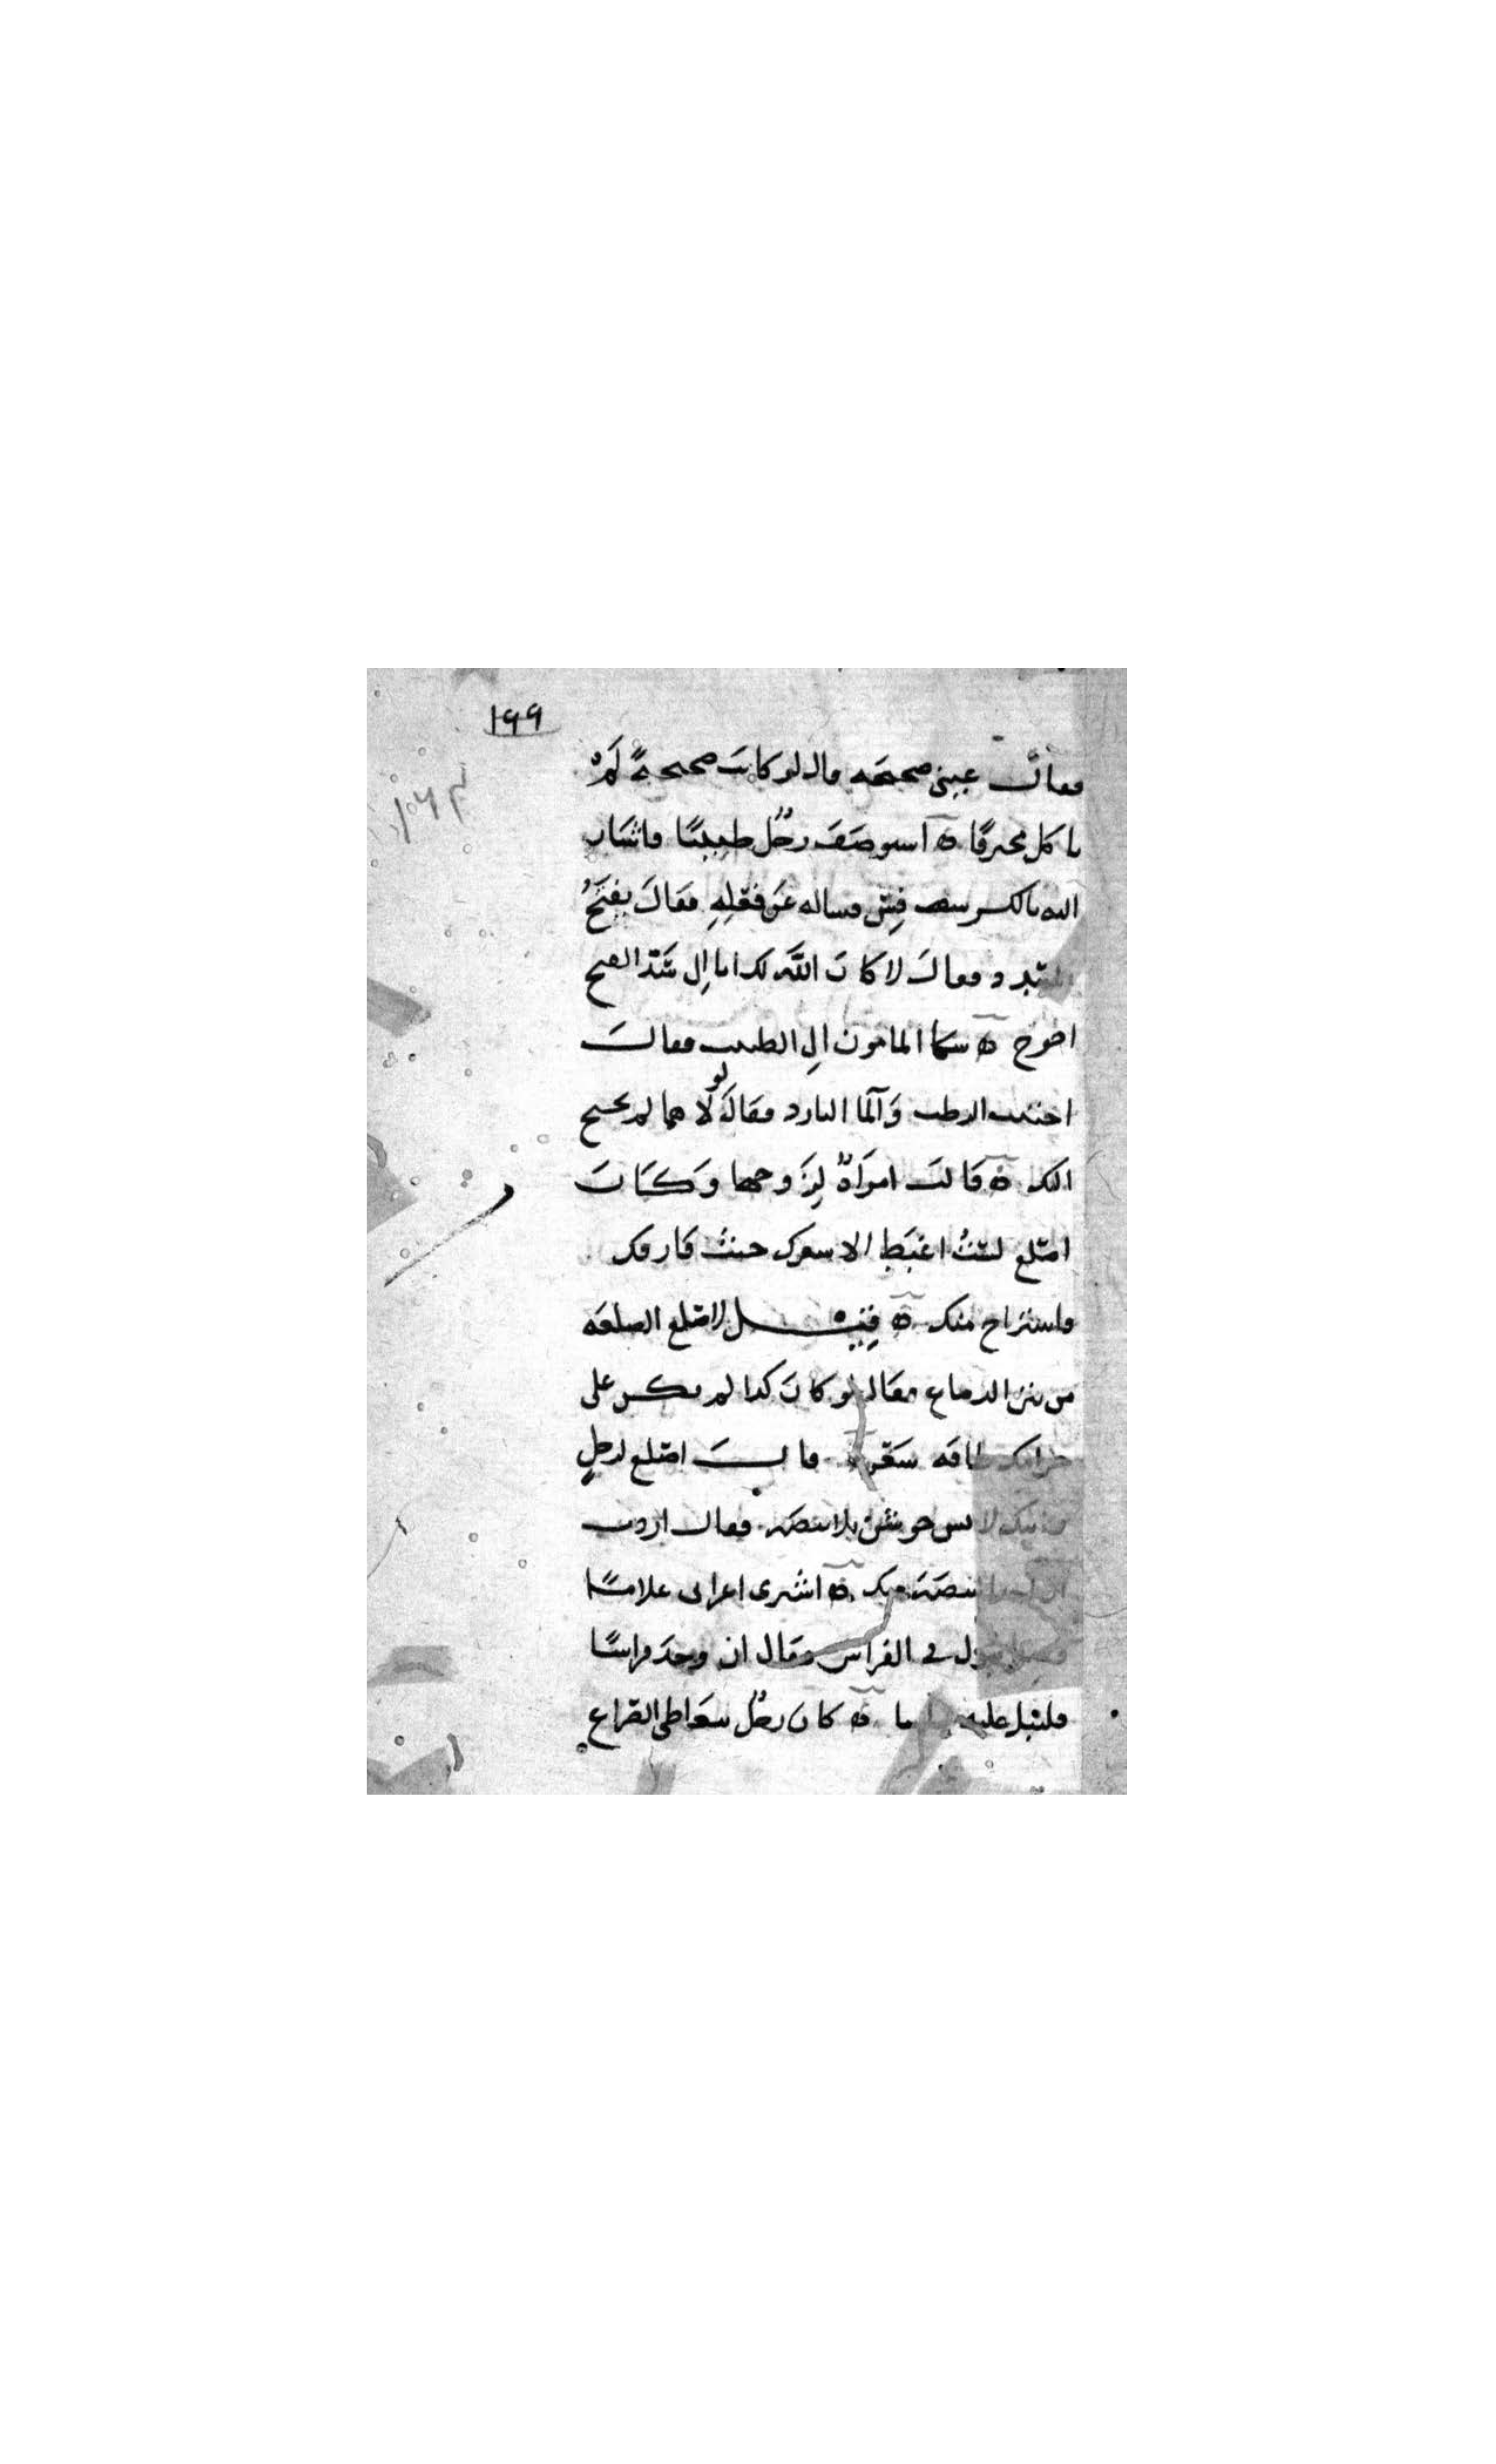 ١٩٩
فقال عيني صحيحه قال لو كانت صحيحة لم
تاكل محترقا ه استوصف رجل طبيبا فاشار
اليه بالكرسف فساله عن فعله فقال يفتح
السدد فقال لا كان الله لك انا الى شد الفتح
احوج ه شكا المامون الى الطبيب فقال
اجتنب الرطب والما البارد فقال لولا هما لم نحتج
اليك ه قالت امراة لزوجها وكان
اصلع لست اغبط الا شعرك حيث فارقك
واستراح منك ه قيل لاصلع الصلعه
من نتن الدماغ فقال لو كان كذا لم يكن على
حرامك طاقه شعر ه قال اصلع لرجل
لابس جوشن بلا بيضه فقال اردت
بيضه منك ه اشترى اعرابي غلاما
يبول في الفراش فقال ان وجد فراشا
فليبل عليه ه كان رجل يتعاطى الصراع